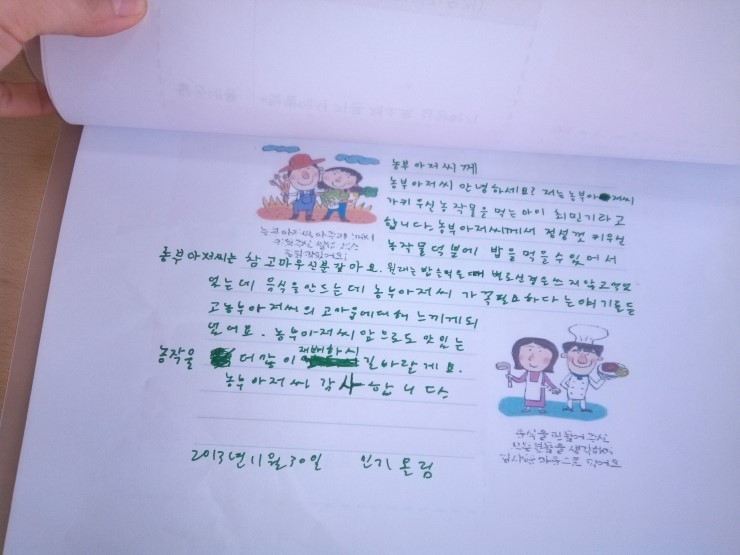 농부아저씨께
농부아저씨 안녕하세요? 저는 농부아저씨
가키우신 농작물을 먹는 아이 최민기라고
합니다. 농부아저씨께서 정성껏 키우신
농작물덕분에 밥을 먹을수 있어서
농부아저씨는 참 고마우신분 같아요. 원래는 밥을먹을때 별로신경을쓰지않고먹었
었는데 음식을만드는데 농부아저씨가 꼭필요하다는얘기를듣
고농부아저씨의 고마움에대해 느끼게되
었어요. 농부아저씨 앞으로도 맛있는
농작을 더많이 재배하시길바랄게요.
농부아저씨 감사합니다
2013년11월30일 민기올림
음식을 만들어 주신
분들을 생각하며
감사한 마음으로 먹어요